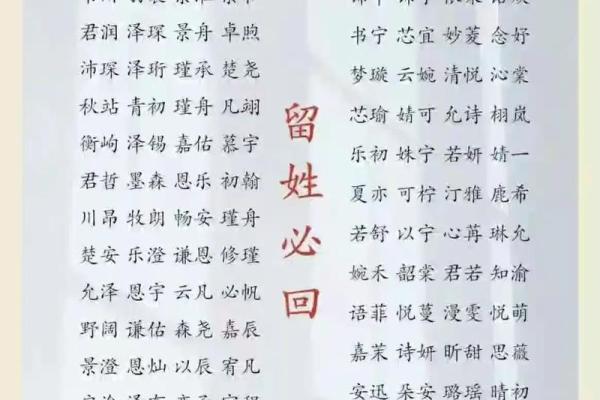 君润 泽琛 景舟 卓煦
沛琛 泽珩 瑾承 楚尧
秋站 青初 瑾舟 凡翊
衡岣 泽锡 嘉佑 慕宇
君哲 墨森 恩乐 初翰
川昂 牧朗 畅安 瑾舟
楚安 乐澄 谦恩 修瑾
允泽 恩宇 云凡 必帆
野阔 谦佑 森尧 嘉辰
景澄 恩灿 以辰 宥凡
留姓必回
书宁 芯宜 妙菱 念好
梦璇 云婉 清悦 沁棠
芯瑜 婧可 允诗 栩岚
乐初 姝宁 若妍 婧一
夏亦 可柠 汀雅 鹿希
若舒 以宁 心苒 琳允
婉禾 韶棠 君若 知渝
语菲 悦蔓 漫雯 悦萌
嘉茉 诗妍 昕甜 思薇
安迅 朵安 璐瑶 晴初